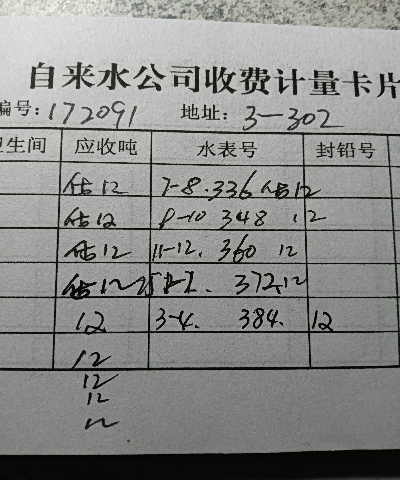 自来水公司收费计量卡片
编号:172091 地址:3-302
卫生间 应收吨 水表号 封铅号
估12 7-8.336 估12
估12 8-10 348 .12
估12 11-12. 360 12
估12 372.12
12 3-4. 384. 12
12
12
12
12